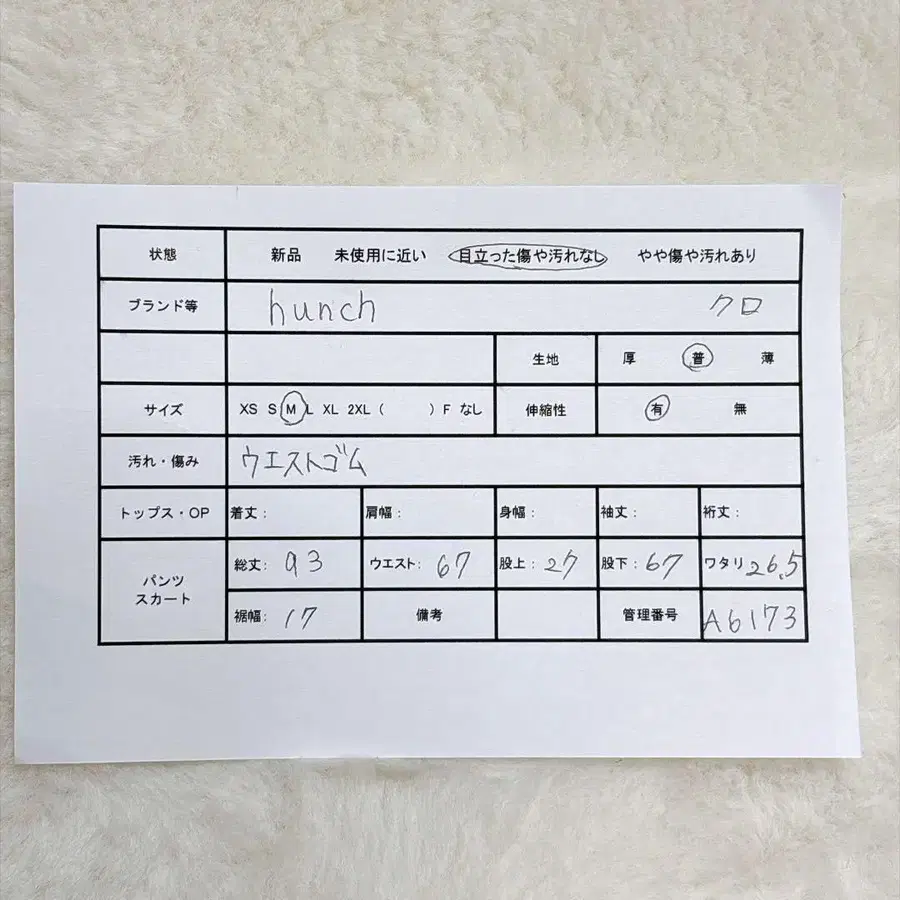 状態 新品 未使用に近い 目立った傷や汚れなし やや傷や汚れあり
ブランド等 hunch クロ
生地 厚 普 薄
サイズ XS S M L XL 2XL ( ) F なし 伸縮性 有 無
汚れ・傷み ウエストゴム
トップス・OP 着丈: 肩幅: 身幅: 袖丈: 裄丈:
パンツ スカート 総丈: 93 ウエスト: 67 股上: 27 股下: 67 ワタリ 26.5
裾幅: 17 備考 管理番号 A6173